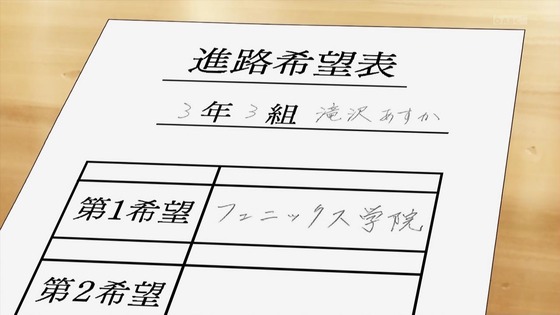 進路希望表
3年3組 滝沢あすか
第1希望 フェニックス学院
第2希望